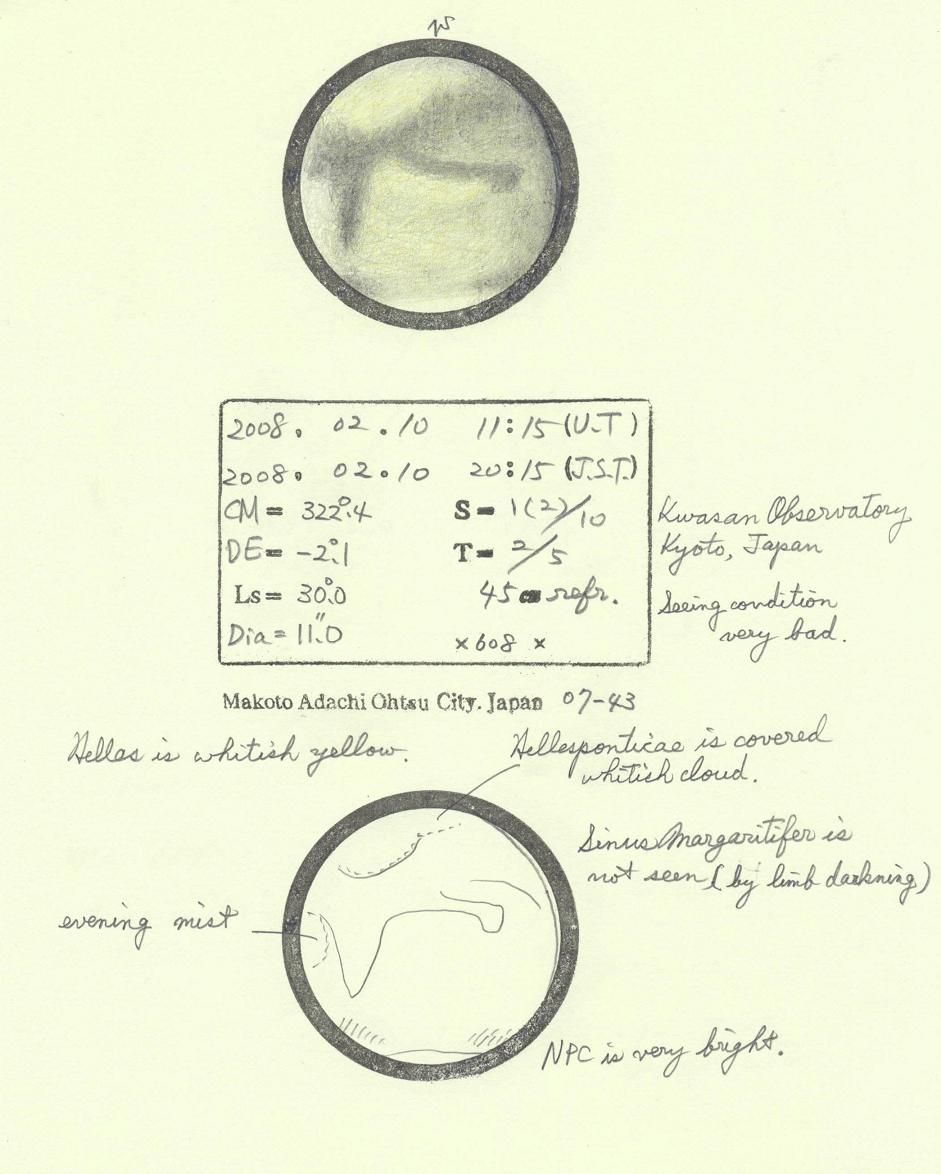 2008. 02.10 11:15 (U.T)
2008. 02.10 20:15 (J.S.T.)
CM = 322°.4 S = 1(2)/10
DE = -2°.1 T = 2/5
Ls = 30°.0 45 cm refr.
Dia = 11".0 ×608 ×
Kwasan Observatory
Kyoto, Japan
Seeing condition
very bad.
Makoto Adachi Ohtsu City. Japan 07-43
Hellas is whitish yellow.
Hellesponticae is covered
whitish cloud.
Sinus Margaritifer is
not seen (by limb darkning)
evening mist
NPC is very bright.